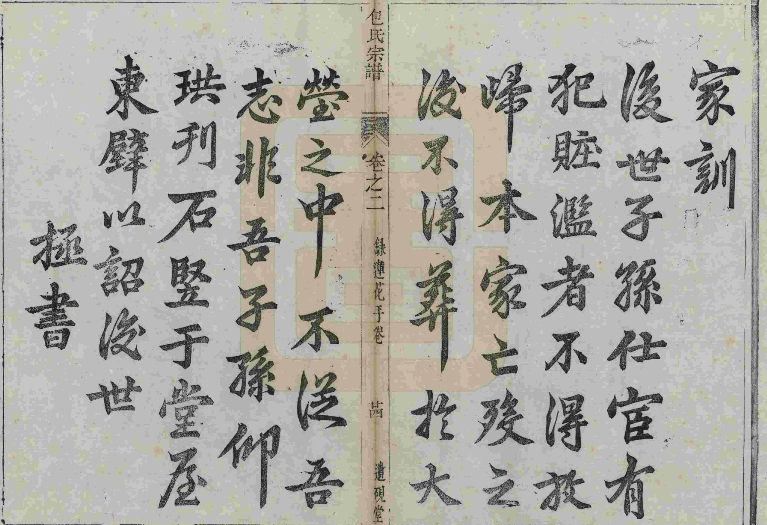 家訓
後世子孫仕宦有
犯贓濫者不得放
歸本家亡殁之
後不得葬於大
包氏宗譜 卷之二 錄蓮花手卷 遺硯堂
塋之中不從吾
志非吾子孫仰
珙刋石竪于堂屋
東壁以詔後世
拯書